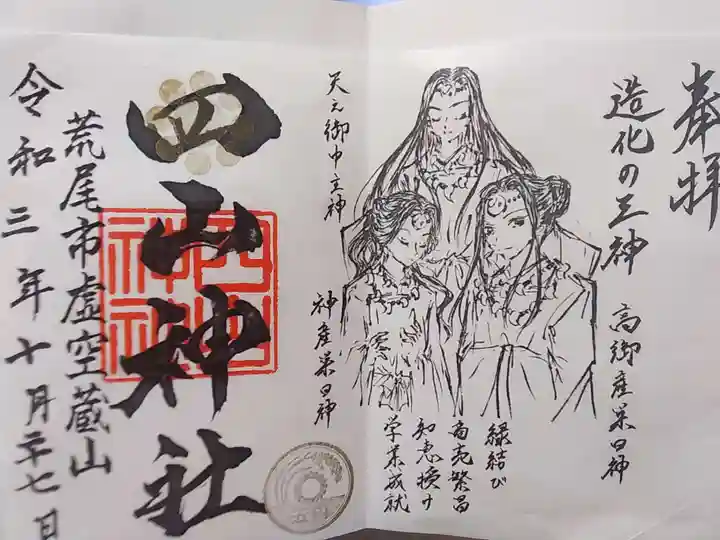 奉拝
造化の三神
高御産巣日神
天之御中主神
神産巣日神
縁結び
商売繁昌
知恵授け
学業成就
四山神社
四山
神社
五円
荒尾市虚空蔵山
令和三年十月二十七日